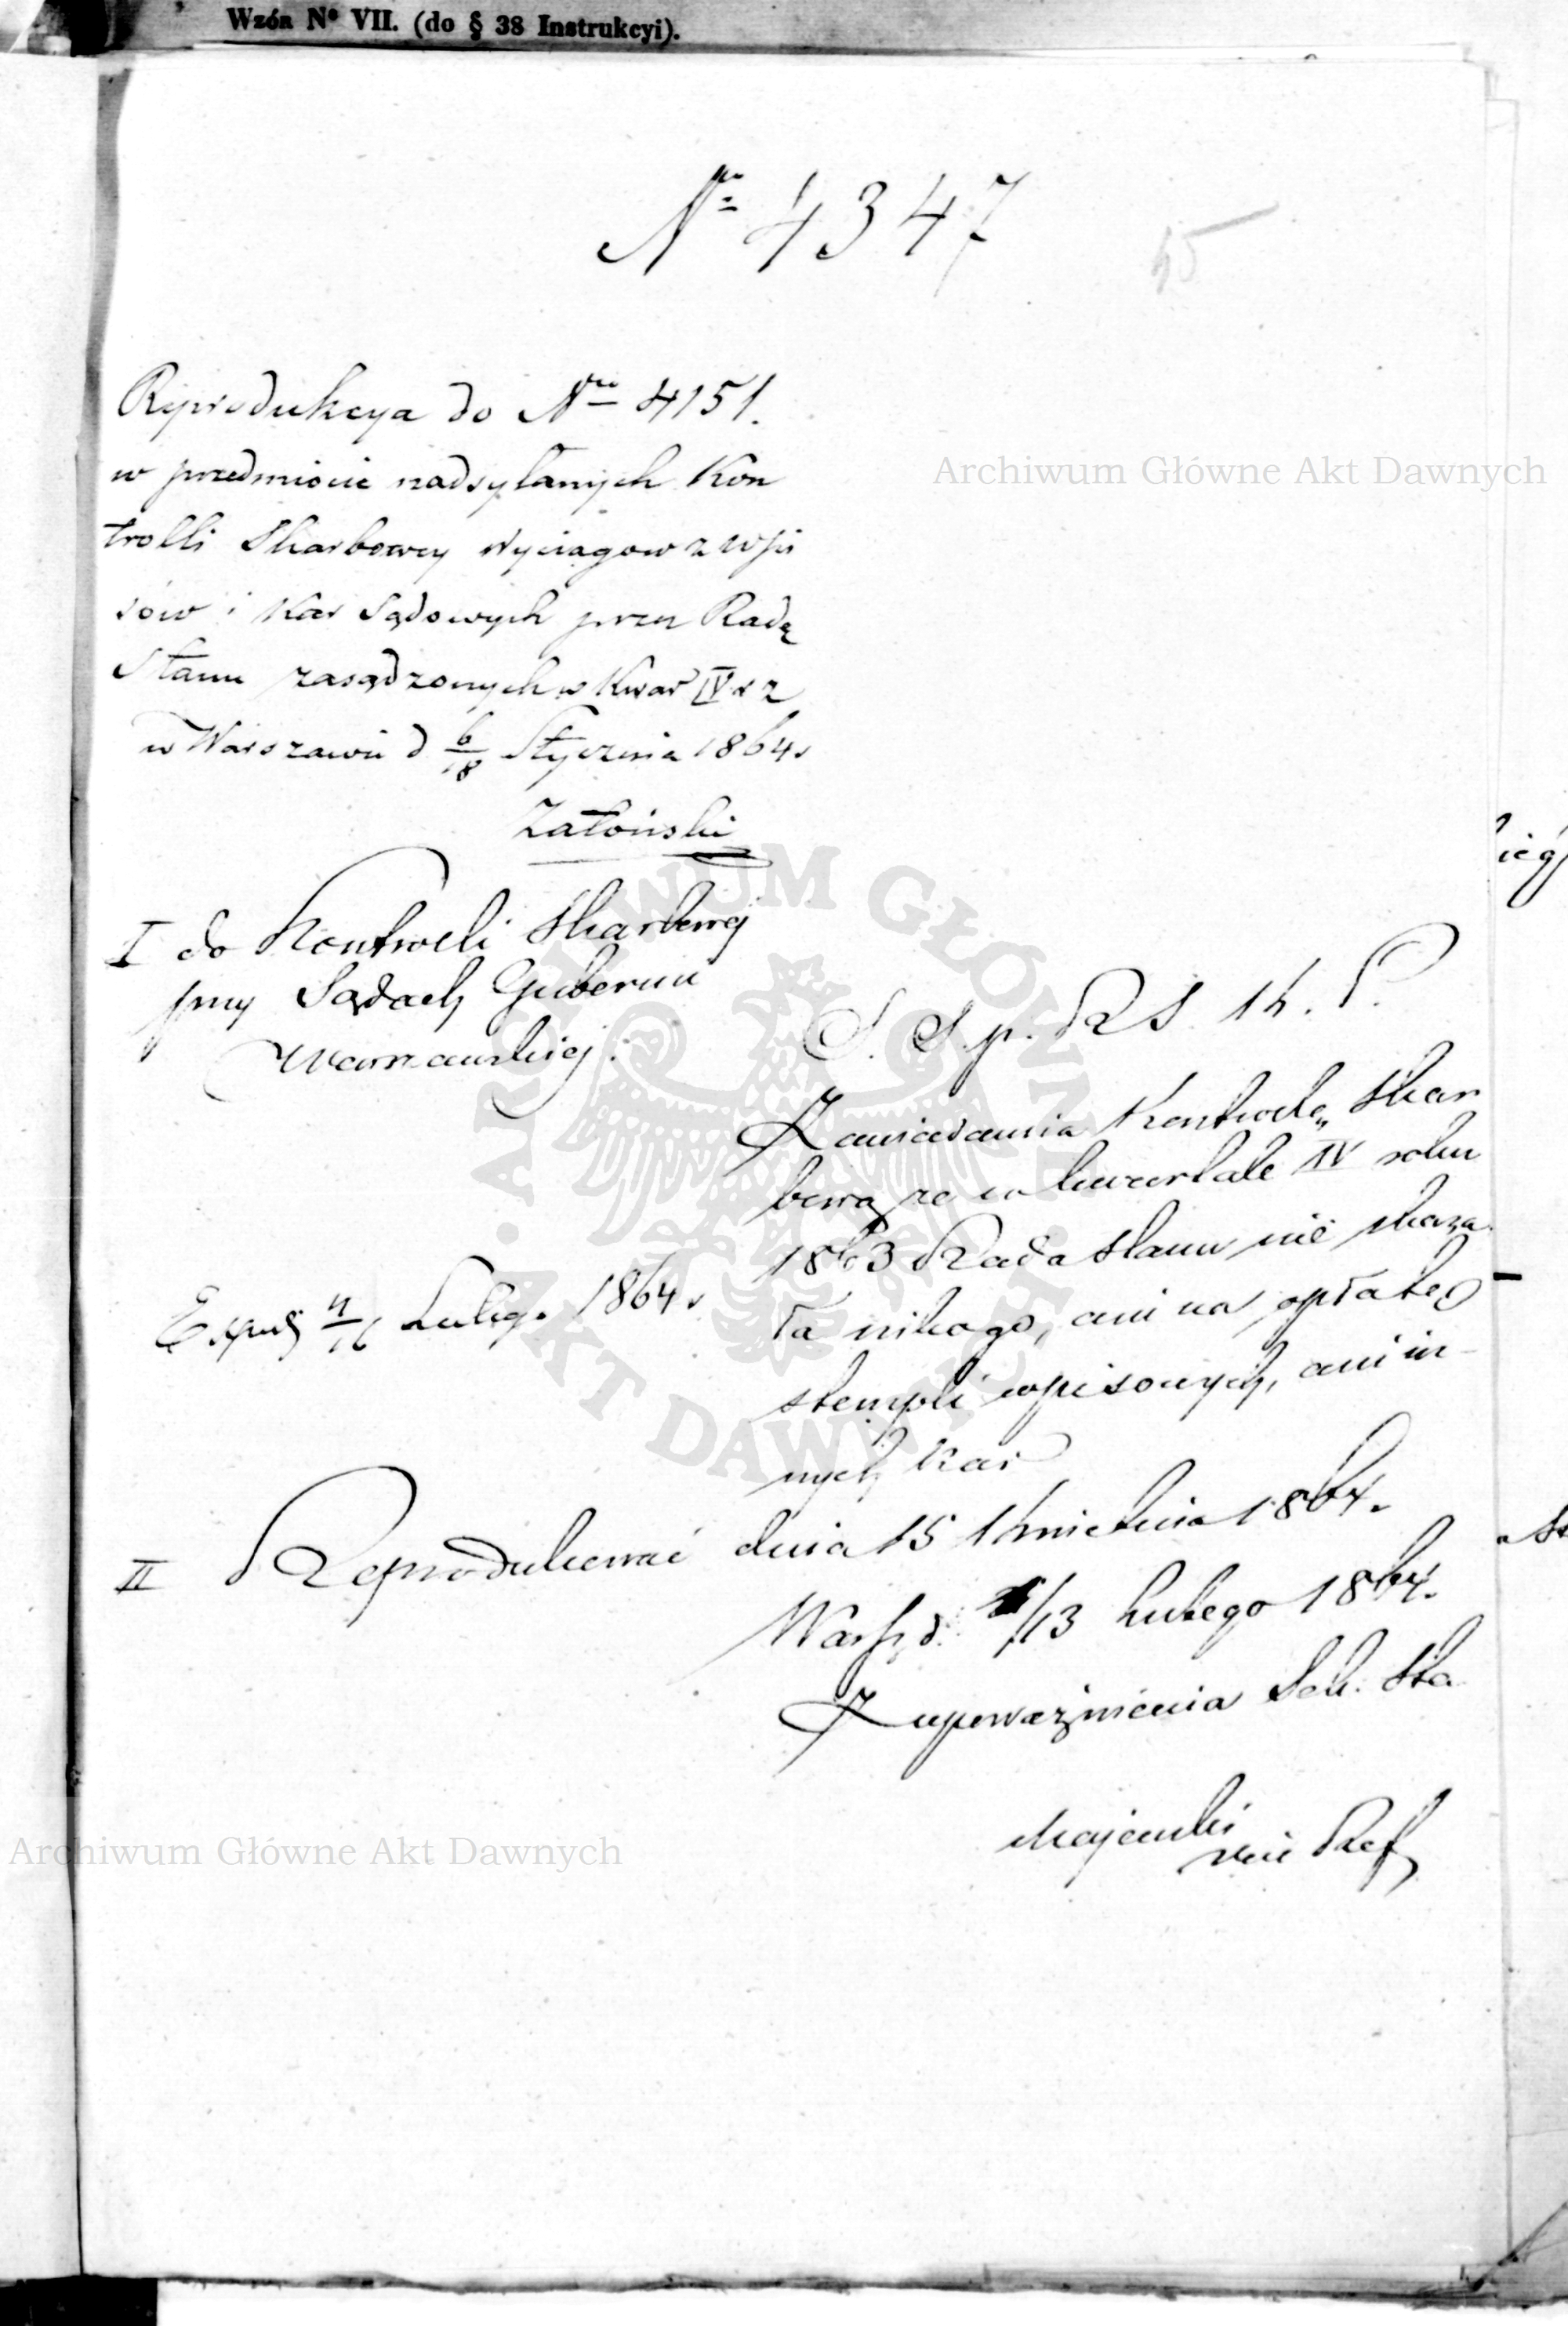 Wzór Nº VII. (do § 38 Instrukcyi).
Nº 4347
55
Reprodukcya do Nru 4151.
w przedmiocie nadsyłanych Kon
trolli Skarbowey Wyciągow z wpi
sów i Kar Sądowych przez Radę
Stanu zasądzonych w Kwar IV r z
w Warszawie d 6/18 Stycznia 1864 r
Załoiński
I do Kontroli Skarbowej
przy Sądach Gubernii
Warszawskiej.
S. S. p. R S. Kr. P.
Zawiadamia Kontrolę Skar
bową że w kwartale IV roku
1863 Rada Stanu nie skaza
ła nikogo, ani na opłatę
stempli wpisowych, ani in-
nych kar
Exped 4/16 Lutego 1864 r
II Reprodukować dnia 15 Kwietnia 1864.
Warsz d. 1/13 Lutego 1864.
Z upoważnienia Sek. Sta
Majewski
Ref
Archiwum Główne Akt Dawnych
Archiwum Główne Akt Dawnych
ARCHIWUM GŁÓWNE AKT DAWNYCH